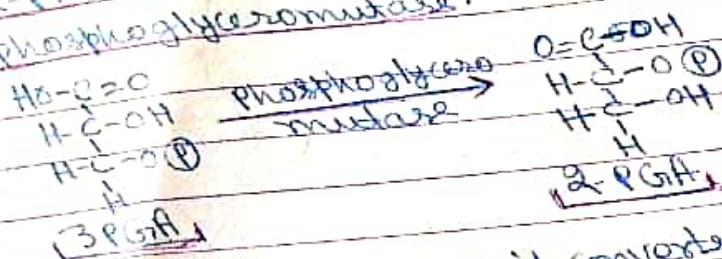 phosphoglyceromutase.
HO-C=O
H-C-OH
H-C-O(P)
H
3PGA
phosphoglycero
mutase
O=C-OH
H-C-O(P)
H-C-OH
H
2-PGA
it converts